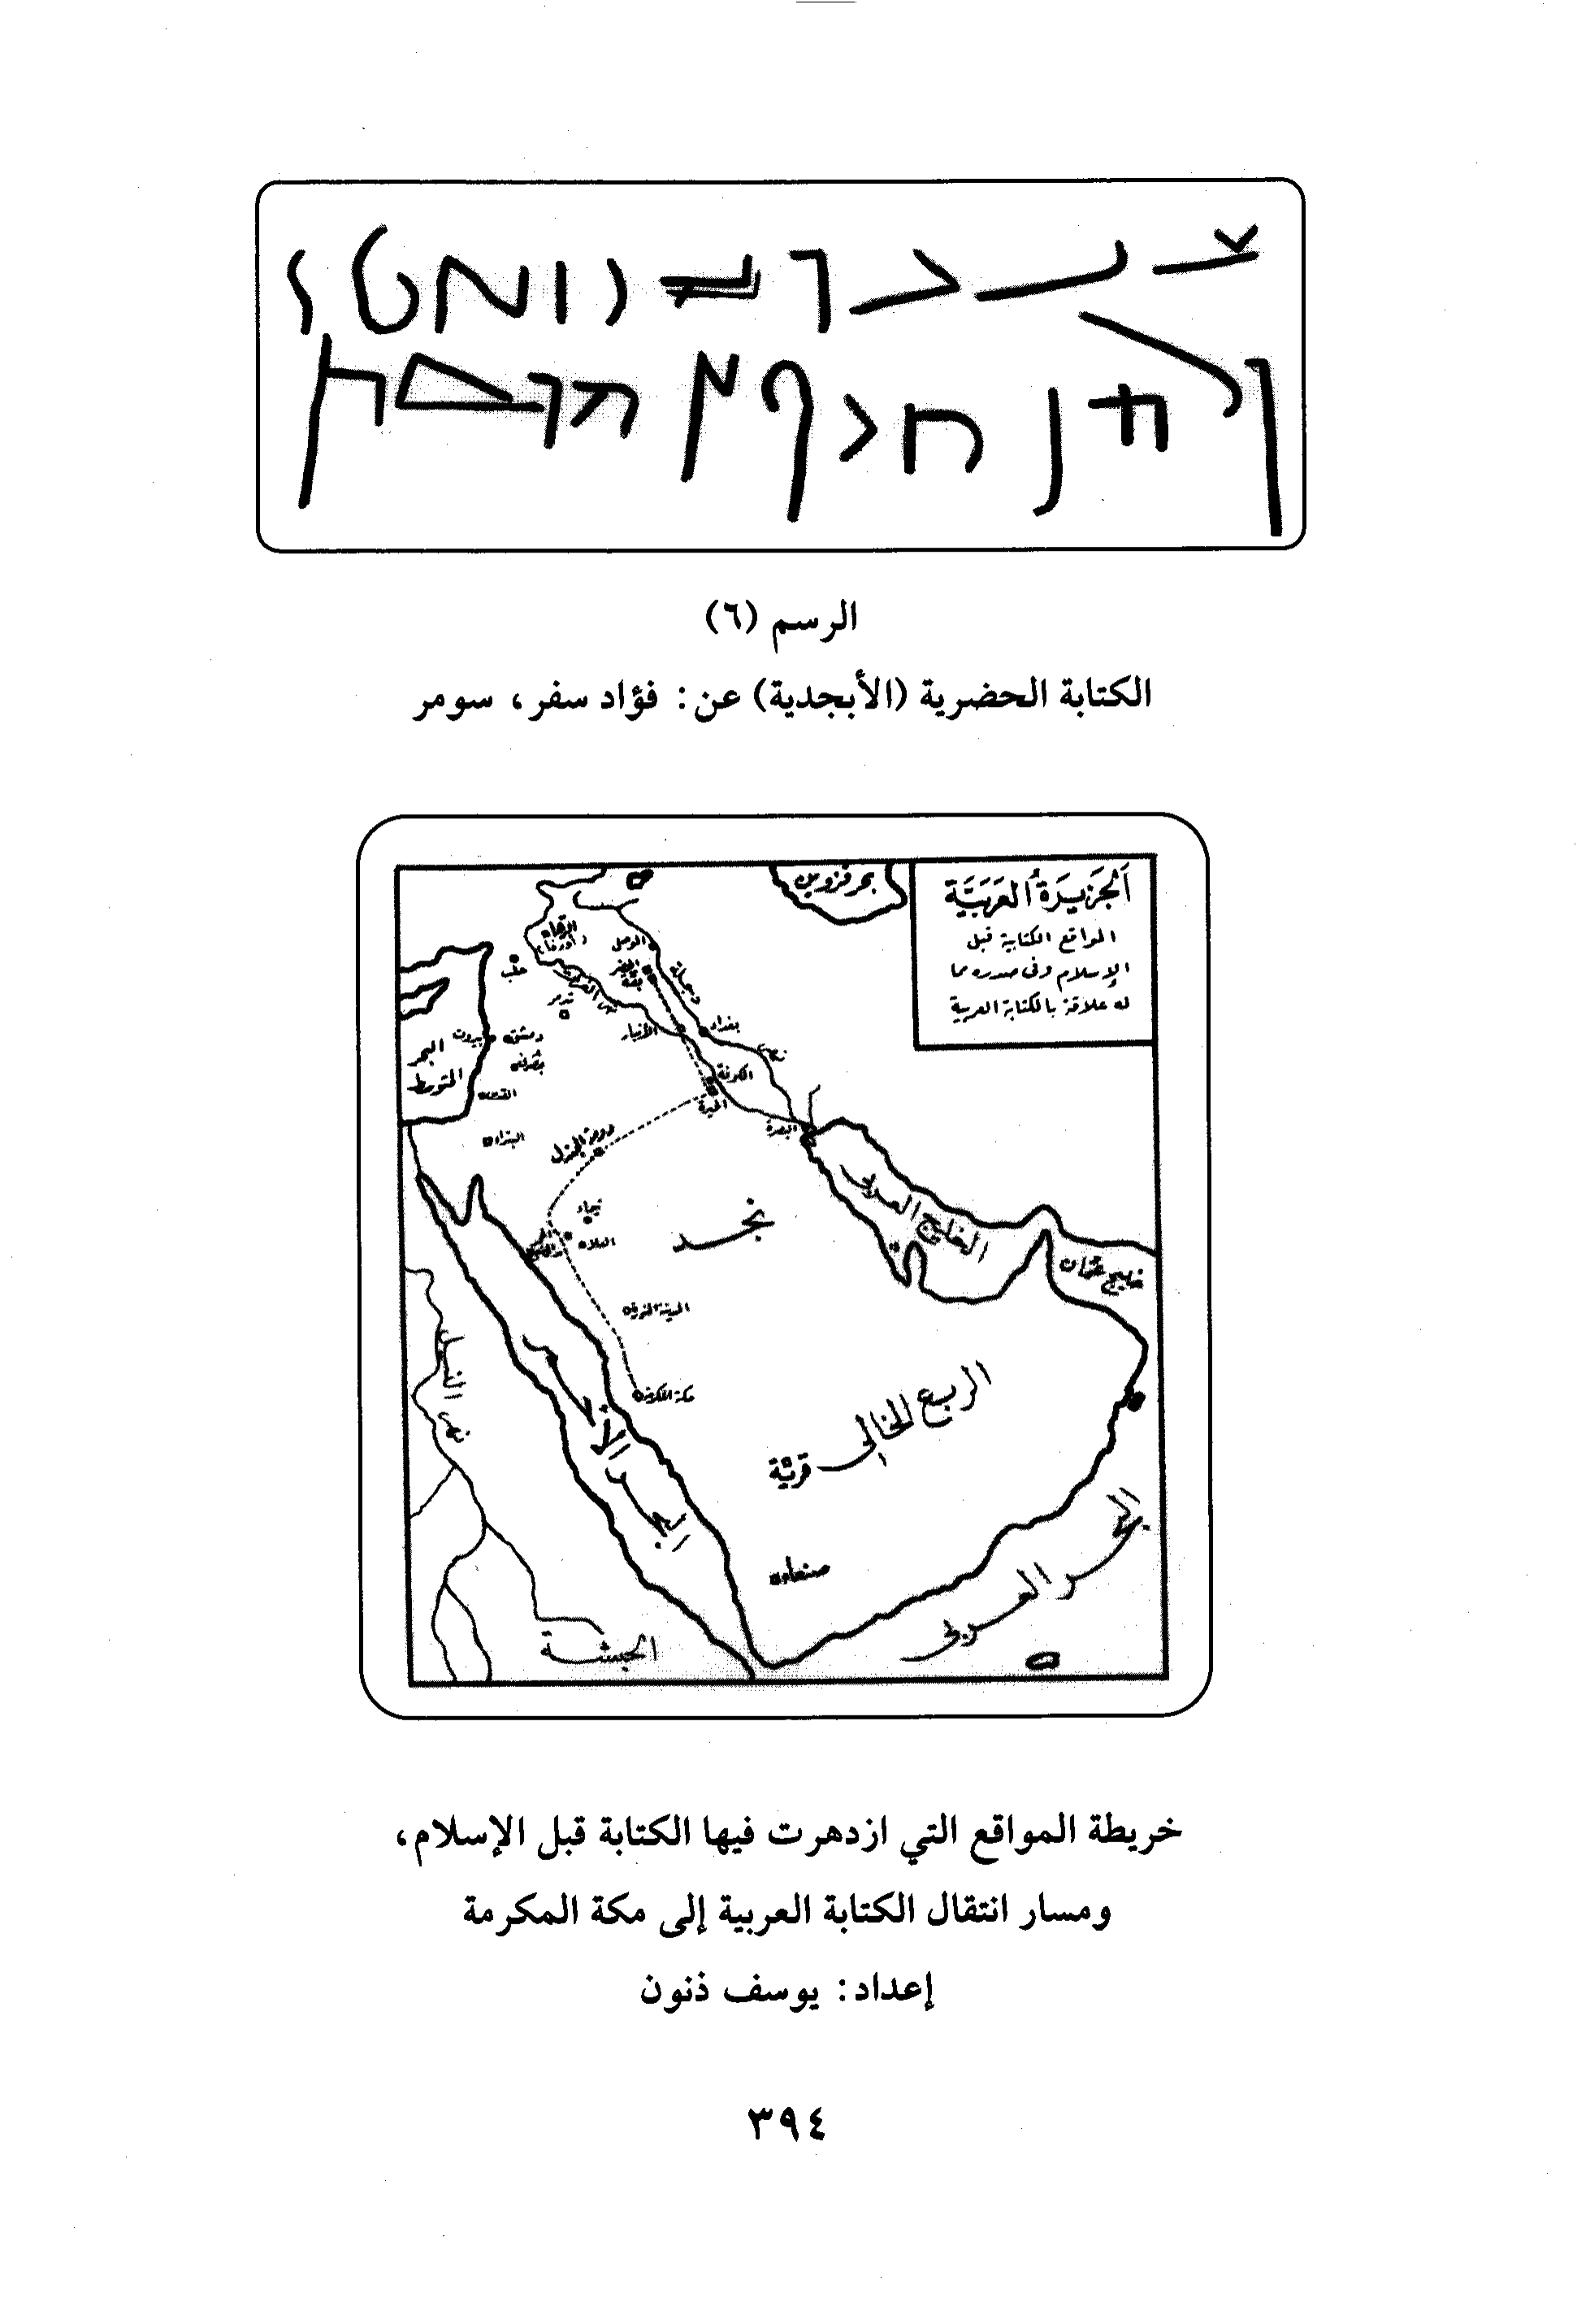 الرسم (٦)
الكتابة الحضرية (الأبجدية) عن: فؤاد سفر، سومر
الجَزيرَةُ العَرَبيَّة
المواقع الكتابية قبل
الإسلام وفى صدره مما
له علاقة بالكتابة العربية
بحر قزوين
الرها
(أورفا)
الموصل
الحضر
بقة
دجلة
حلب
نهر الفرات
تدمر
الأنبار
بغداد
دمشق
بيروت
البحر
المتوسط
القدس
الكوفة
الحيرة
البتراء
البصرة
دومة الجندل
تيماء
العلا
نجد
الخليج العربي
خليج عُمان
المدينة المنورة
مكة المكرمة
نهر النيل
البحر الأحمر
الربع الخالى
قرية
صنعاء
البحر العربى
الحبشة
خريطة المواقع التي ازدهرت فيها الكتابة قبل الإسلام،
ومسار انتقال الكتابة العربية إلى مكة المكرمة
إعداد: يوسف ذنون
٣٩٤